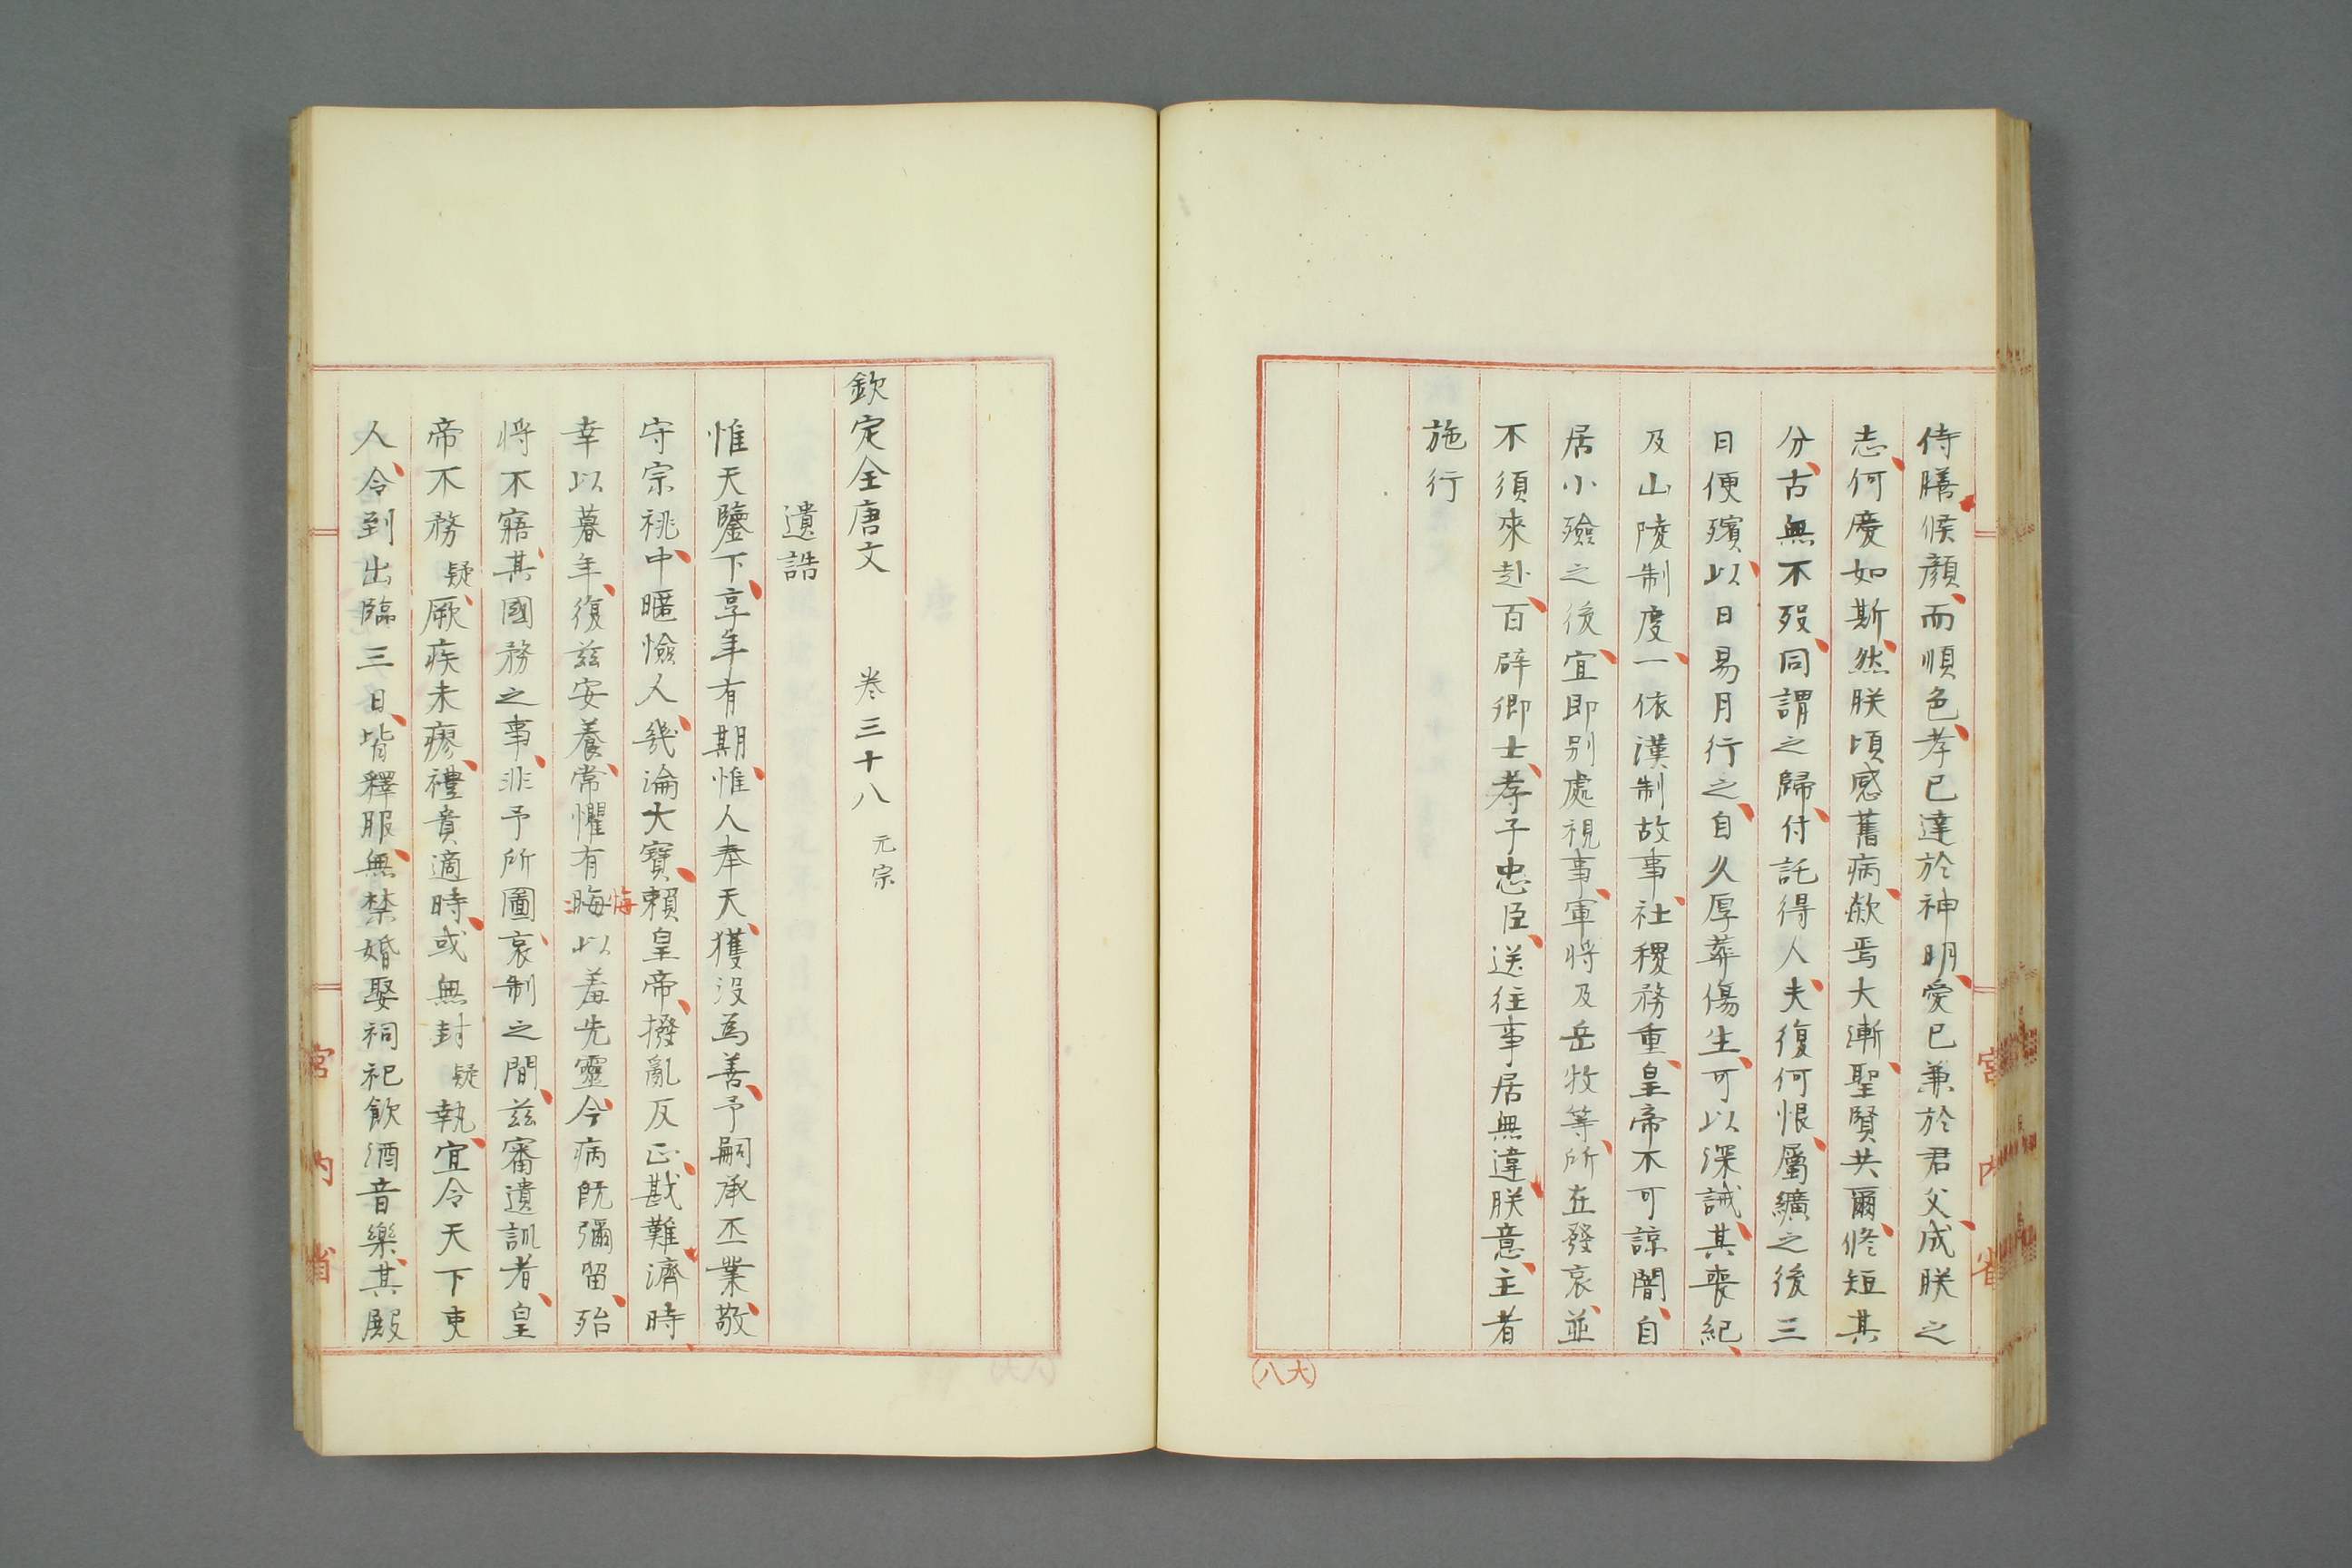 侍膳候顔而順色孝已達於神明愛已兼於君父成朕之
志何慶如斯然朕頃感舊病歘焉大漸聖賢共爾修短其
分古無不歿同謂之歸付託得人夫復何恨屬纊之後三
日便殯以日易月行之自久厚葬傷生可以深誡其喪紀
及山陵制度一依漢制故事社稷務重皇帝不可諒闇自
居小殮之後宜即別處視事軍將及岳牧等所在發哀並
不須來赴百辟卿士孝子忠臣送往事居無違朕意主者
施行
宮内省
(大八)
欽定全唐文 卷三十八 元宗
遺誥
惟天鑒下享年有期惟人奉天獲沒為善予嗣承丕業敬
守宗祧中暱憸人幾淪大寶賴皇帝撥亂反正戡難濟時
幸以暮年復茲安養常懼有晦以羞先靈今病既彌留殆
悔
將不寤其國務之事非予所圖哀制之間茲審遺訓者皇
帝不務疑厥疾未瘳禮賁適時或無封疑執宜令天下吏
人令到出臨三日皆釋服無禁婚娶祠祀飲酒音樂其殿
宮内省